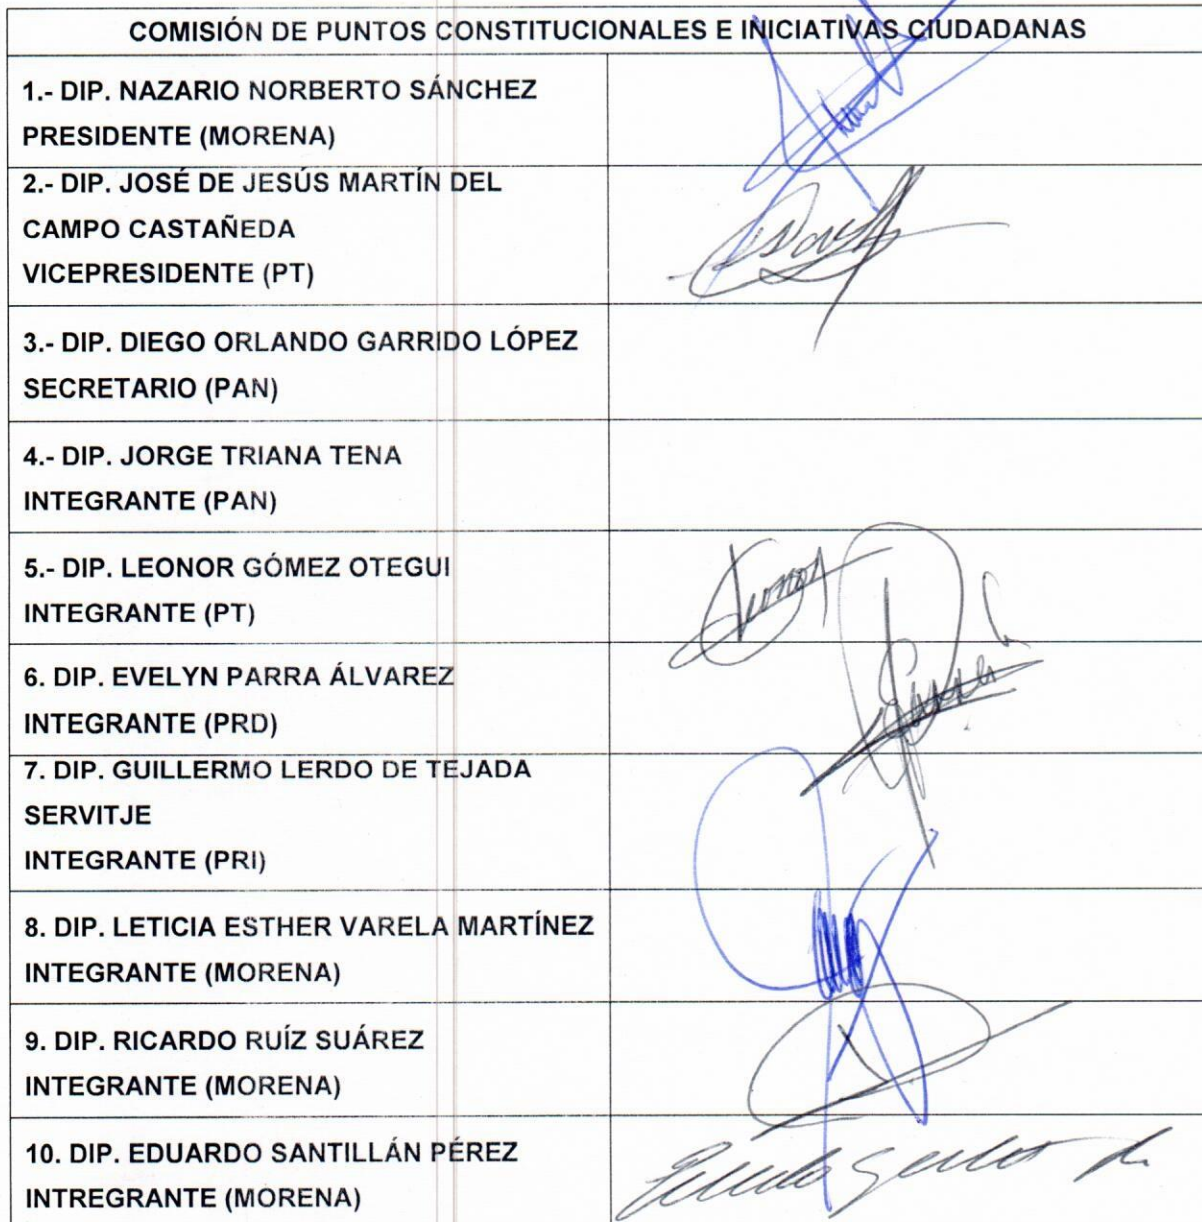 COMISIÓN DE PUNTOS CONSTITUCIONALES E INICIATIVAS CIUDADANAS
1.- DIP. NAZARIO NORBERTO SÁNCHEZ
PRESIDENTE (MORENA)
2.- DIP. JOSÉ DE JESÚS MARTÍN DEL
CAMPO CASTAÑEDA
VICEPRESIDENTE (PT)
3.- DIP. DIEGO ORLANDO GARRIDO LÓPEZ
SECRETARIO (PAN)
4.- DIP. JORGE TRIANA TENA
INTEGRANTE (PAN)
5.- DIP. LEONOR GÓMEZ OTEGUI
INTEGRANTE (PT)
6. DIP. EVELYN PARRA ÁLVAREZ
INTEGRANTE (PRD)
7. DIP. GUILLERMO LERDO DE TEJADA
SERVITJE
INTEGRANTE (PRI)
8. DIP. LETICIA ESTHER VARELA MARTÍNEZ
INTEGRANTE (MORENA)
9. DIP. RICARDO RUÍZ SUÁREZ
INTEGRANTE (MORENA)
10. DIP. EDUARDO SANTILLÁN PÉREZ
INTREGRANTE (MORENA)